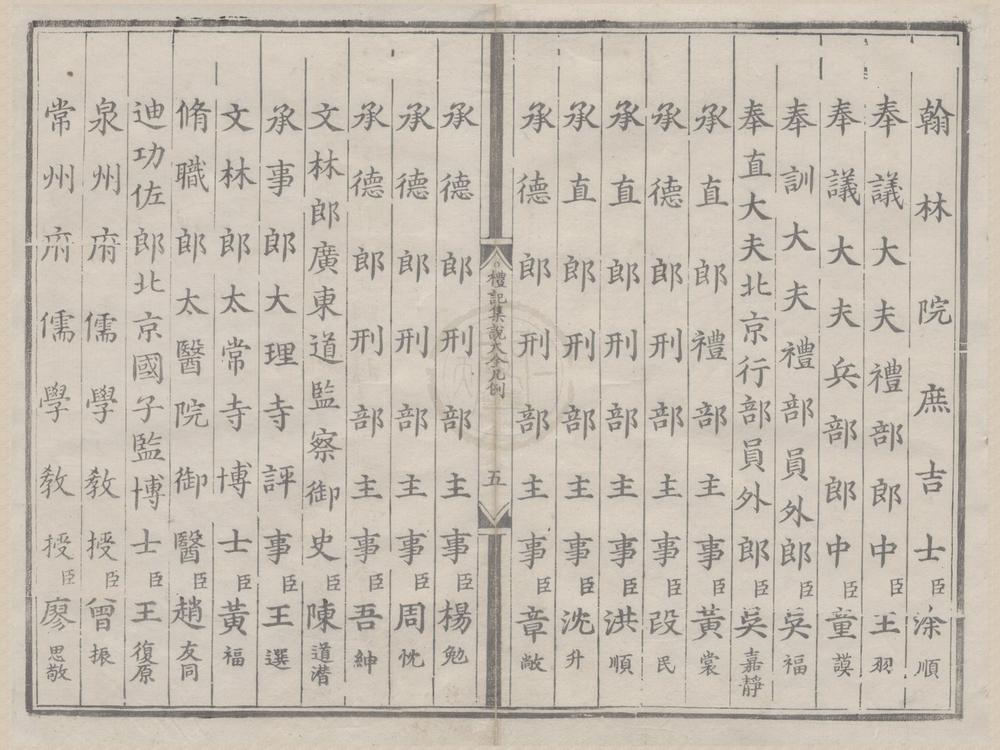 翰林院庶吉士臣涂順
奉議大夫禮部郎中臣王羽
奉議大夫兵部郎中臣童謨
奉訓大夫禮部員外郎臣吳福
奉直大夫北京行部員外郎臣吳嘉靜
承直郎禮部主事臣黃裳
承德郎刑部主事臣段民
承直郎刑部主事臣洪順
承直郎刑部主事臣沈升
承德郎刑部主事臣章敞
禮記集說大全凡例 五
承德郎刑部主事臣楊勉
承德郎刑部主事臣周忱
承德郎刑部主事臣吾紳
文林郎廣東道監察御史臣陳道潛
承事郎大理寺評事臣王選
文林郎太常寺博士臣黃福
脩職郎太醫院御醫臣趙友同
迪功佐郎北京國子監博士臣王復原
泉州府儒學教授臣曾振
常州府儒學教授臣廖思敬